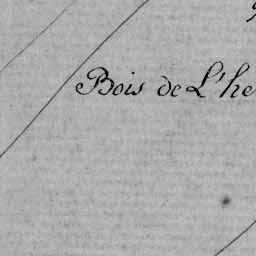 Bois de L'he